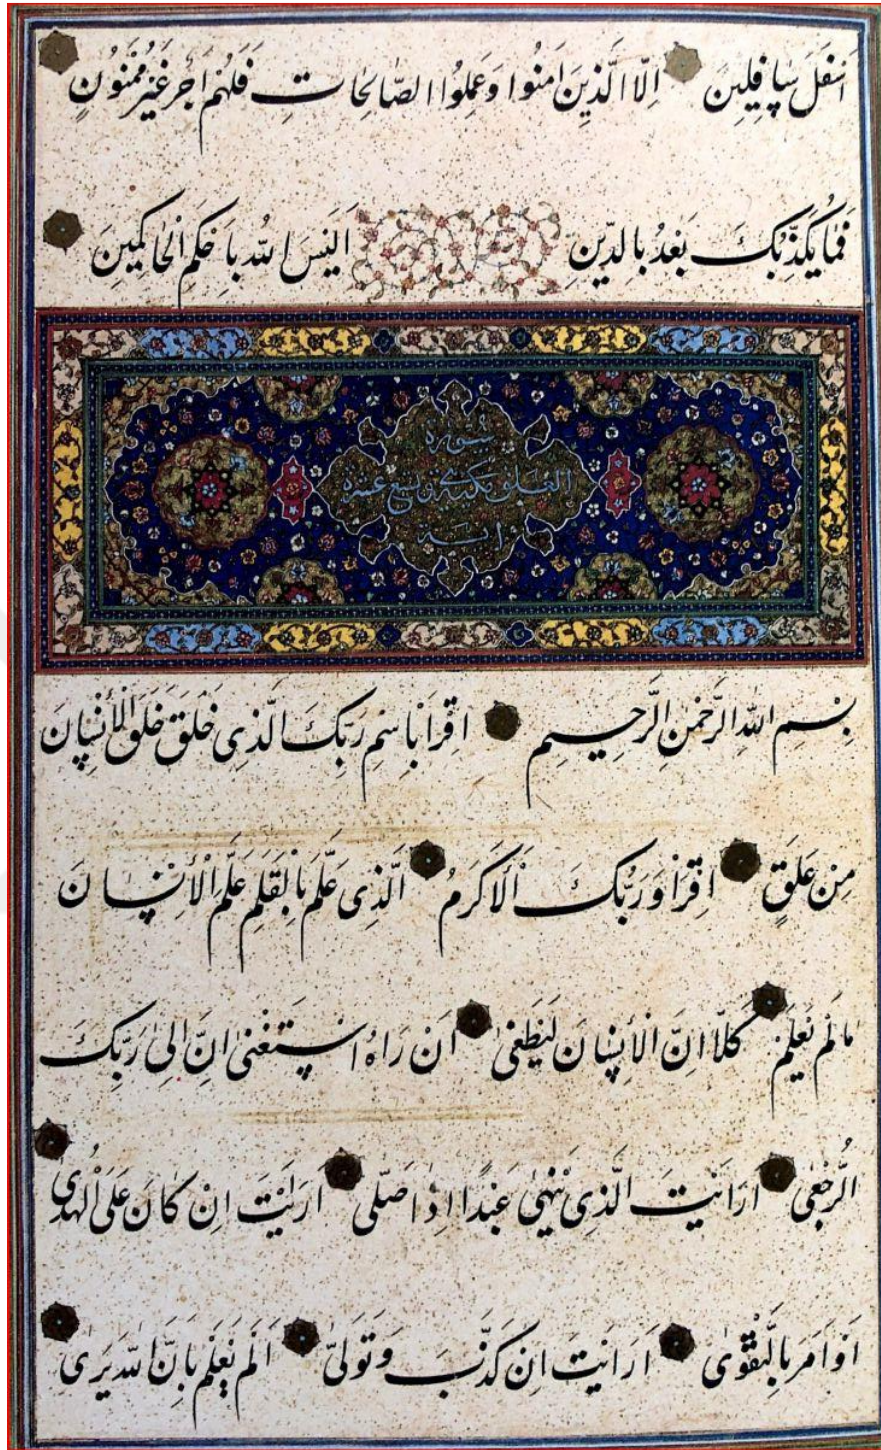 اَسْفَلَ سَافِلِينَ اِلَّا الَّذِينَ امَنُوا وَعَمِلُوا الصَّالِحَاتِ فَلَهُمْ اَجْرٌ غَيْرُ مَمْنُونٍ
فَمَا يُكَذِّبُكَ بَعْدُ بِالدِّينِ اَلَيْسَ اللّهُ بِاَحْكَمِ الْحَاكِمِينَ
سُورَة
العلق مكية وتسع عشرة
اية
بِسْمِ اللّهِ الرَّحْمنِ الرَّحِيمِ اِقْرَاْ بِاسْمِ رَبِّكَ الَّذِى خَلَقَ خَلَقَ الْاِنْسَانَ
مِنْ عَلَقٍ اِقْرَاْ وَرَبُّكَ الْاَكْرَمُ اَلَّذِى عَلَّمَ بِالْقَلَمِ عَلَّمَ الْاِنْسَانَ
مَالَمْ يَعْلَمْ كَلَّا اِنَّ الْاِنْسَانَ لَيَطْغىٰ اَنْ رَاهُ اسْتَغْنىٰ اِنَّ اِلىٰ رَبِّكَ
الرُّجْعىٰ اَرَاَيْتَ الَّذِى يَنْهىٰ عَبْدًا اِذَا صَلّىٰ اَرَاَيْتَ اِنْ كَانَ عَلَى الْهُدىٰ
اَوْ اَمَرَ بِالتَّقْوىٰ اَرَاَيْتَ اِنْ كَذَّبَ وَتَوَلّىٰ اَلَمْ يَعْلَمْ بِاَنَّ اللّهَ يَرىٰ